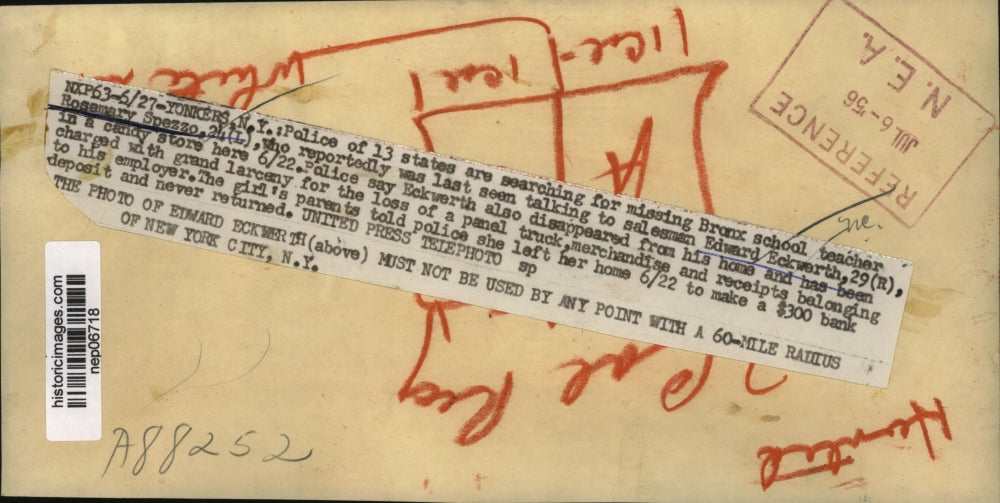 NXP63-6/27-YONKERS,N.Y.:Police of 13 states are searching for missing Bronx school teacher
Rosemary Spezzo,24(L),who reportedly was last seen talking to salesman Edward Eckwerth,29(R),
in a candy store here 6/22.Police say Eckwerth also disappeared from his home and has been
charged with grand larceny for the loss of a panel truck,merchandise and receipts belonging
to his employer.The girl's parents told police she left her home 6/22 to make a $300 bank
deposit and never returned. UNITED PRESS TELEPHOTO sp
THE PHOTO OF EDWARD ECKWERTH(above) MUST NOT BE USED BY ANY POINT WITH A 60-MILE RADIUS
OF NEW YORK CITY, N.Y.
REFERENCE
JUL 6-'56
N. E. A.
historicimages.com
nep06718
A88252
White
1 Col
1 Col
A